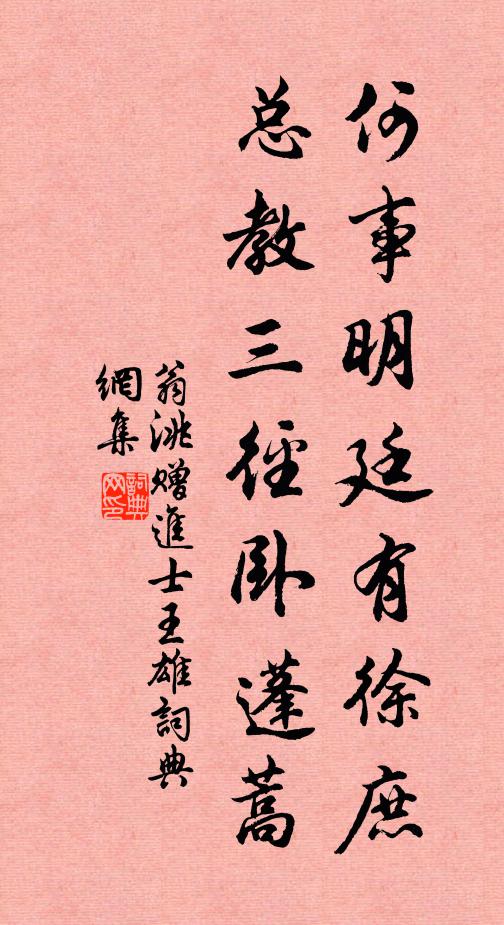 何事明廷有徐庶
总教三径卧蓬蒿
翁洮赠進士王雄詞典
網集
詞典网印